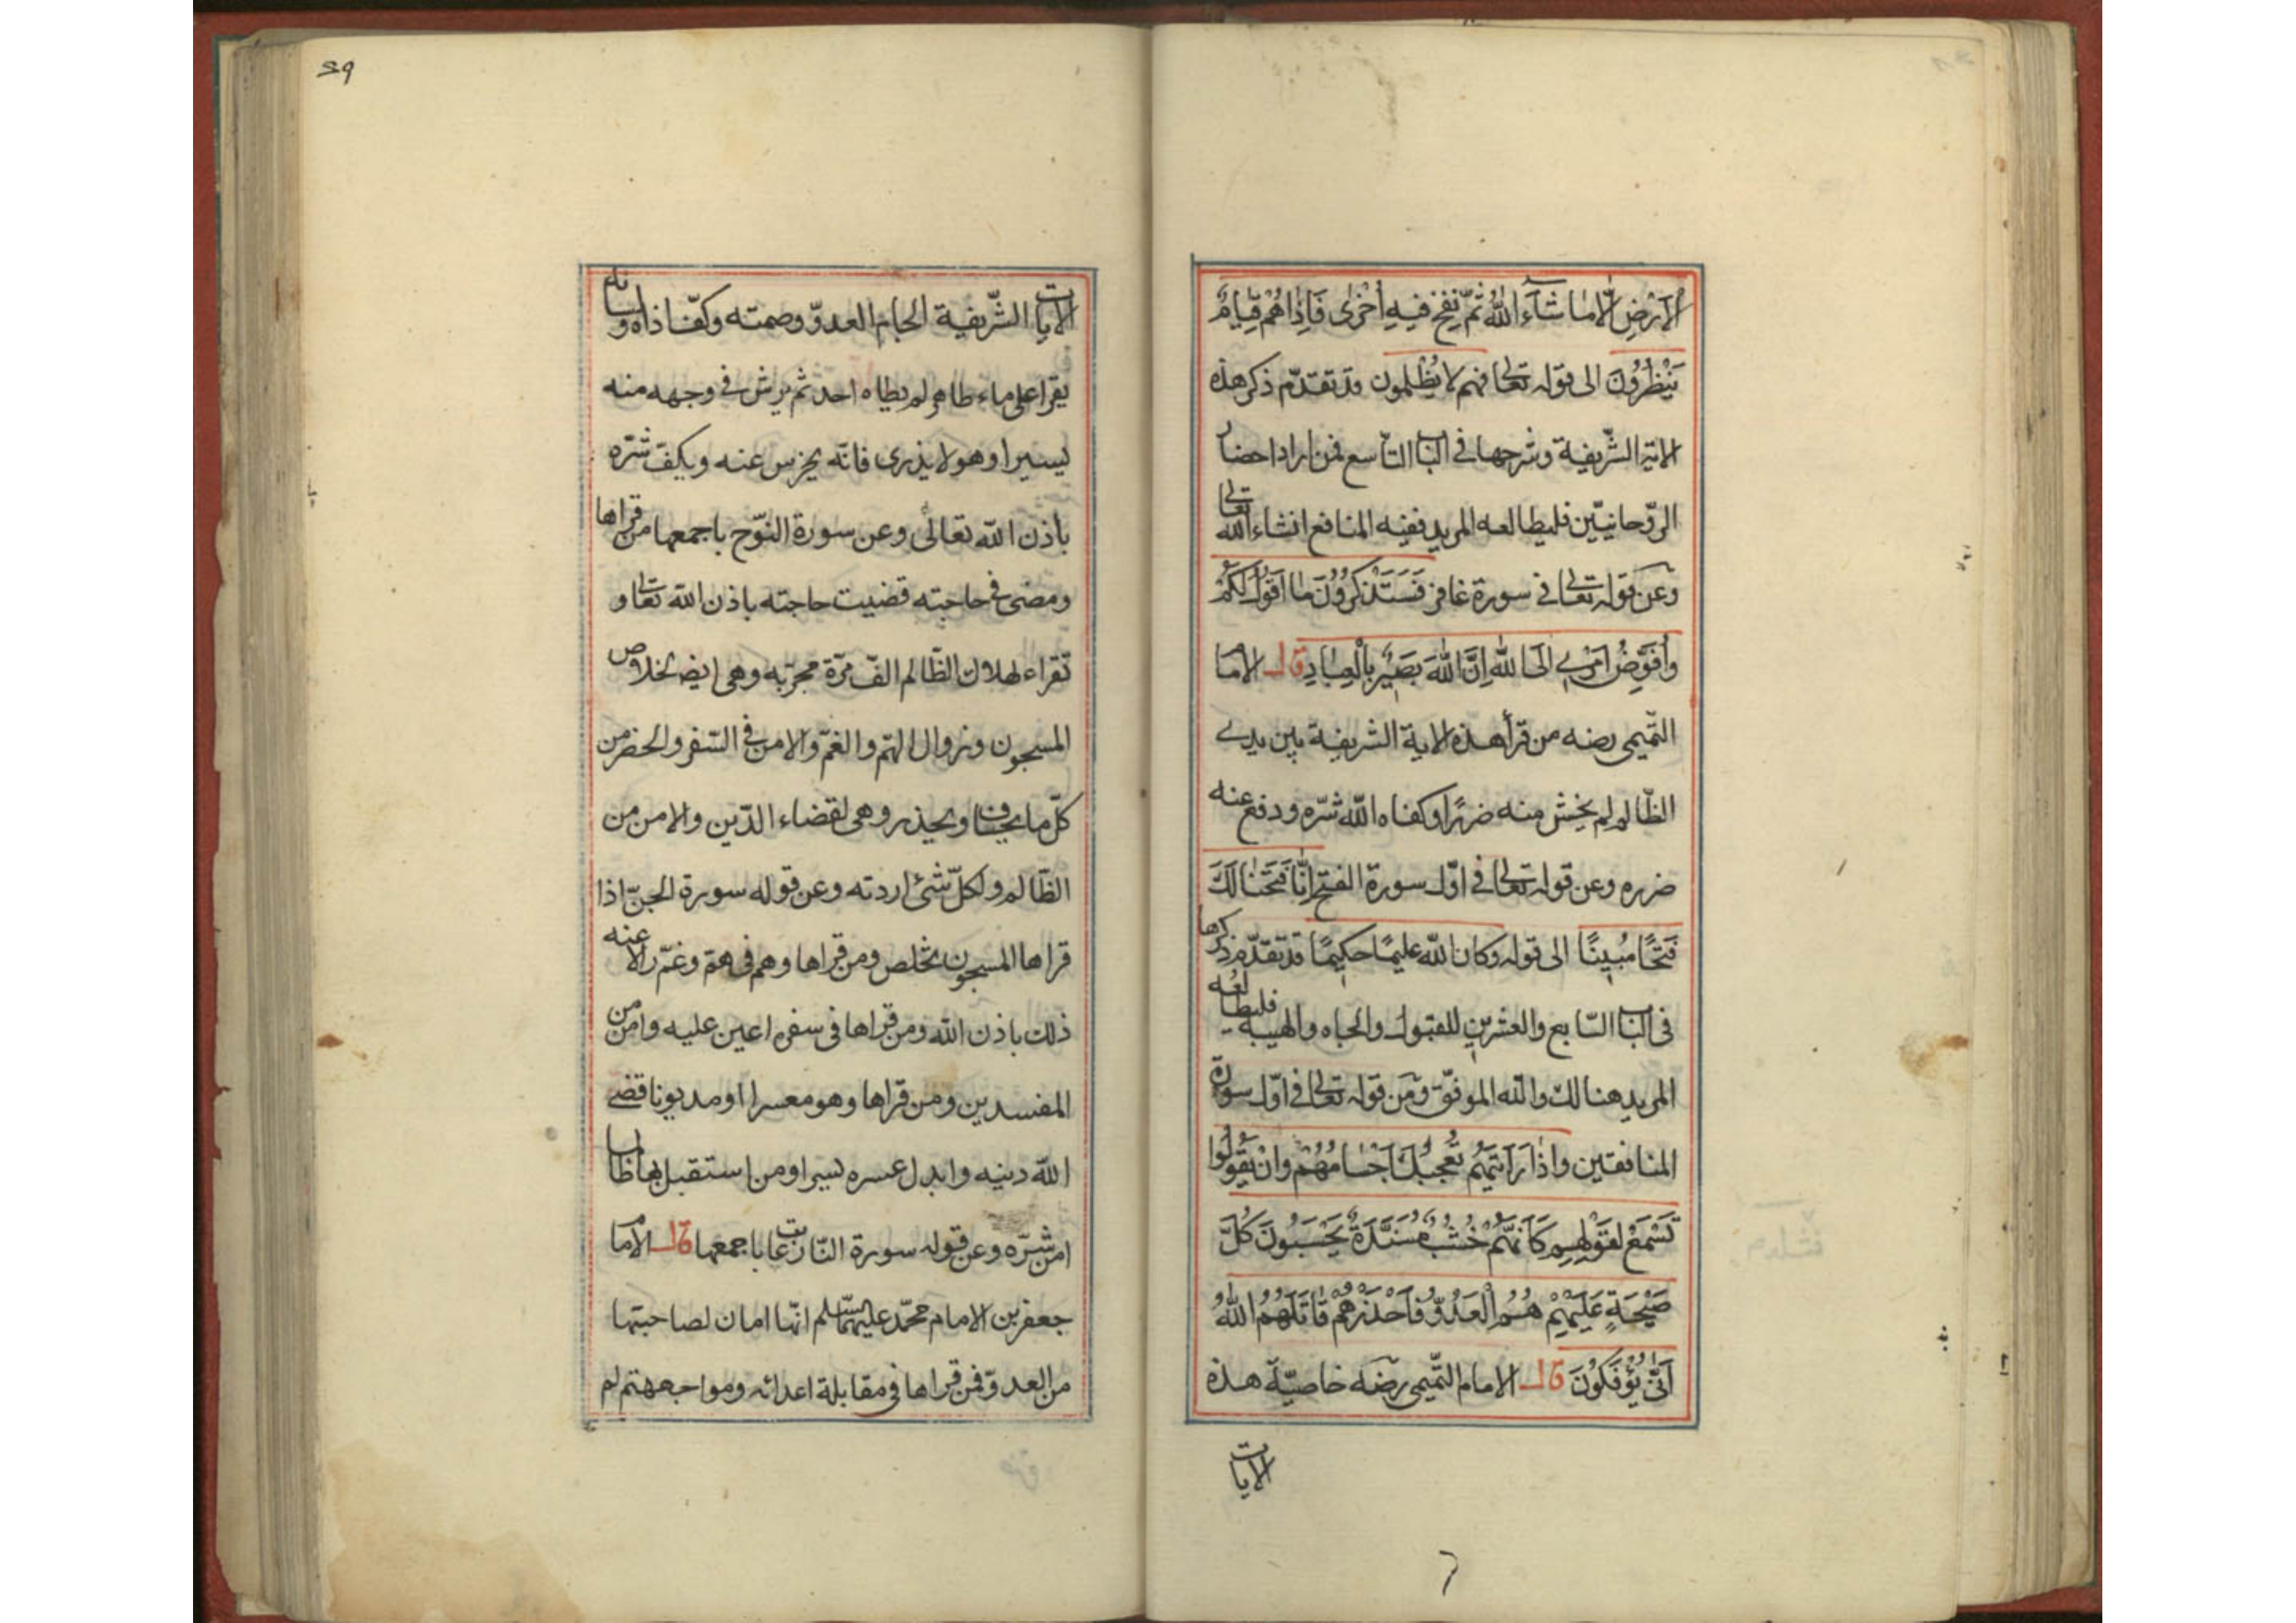 الارض الّا ما شاء الله ثمّ نفخ فيه اخرى فاذا هم قيام
ينظرون الى قوله تعالى فهم لا يظلمون وقد تقدّم ذكر هذه
الاية الشّريفة وشرحها فى الباب التاسع فمن اراد احضار
الرّوحانيّين فليطالعه المريد ففيه المنافع انشاء الله تعالى
وعن قوله تعالى فى سورة غافر فَسَتَذْكُرُونَ مَا اَقُولُ لَكُمْ
وَاُفَوِّضُ اَمْرِى اِلَى اللهِ اِنَّ اللهَ بَصِيرٌ بِالْعِبَادِ قال الامام
التّميمى رضه من قرأ هذه الاية الشريفة بين يدى
الظّالم لم يخش منه ضررًا وكفاه الله شرّه ودفع عنه
ضرره وعن قوله تعالى فى اوّل سورة الفتح اِنَّا فَتَحْنَا لَكَ
فَتْحًا مُبِينًا الى قوله وكان الله عليمًا حكيمًا قد تقدّم ذكرها
فى الباب السّابع والعشرين للقبول والجاه والهيبة فليطالعه
المريد هنالك والله الموفّق وعن قوله تعالى فى اوّل سورة
المنافقين وَاِذَا رَاَيْتَهُمْ تُعْجِبُكَ اَجْسَامُهُمْ وَاِنْ يَقُولُوا
تَسْمَعْ لِقَوْلِهِمْ كَاَنَّهُمْ خُشُبٌ مُسَنَّدَةٌ يَحْسَبُونَ كُلَّ
صَيْحَةٍ عَلَيْهِمْ هُمُ الْعَدُوُّ فَاحْذَرْهُمْ قَاتَلَهُمُ اللهُ
اَنَّى يُؤْفَكُونَ قال الامام التّميمى رضه خاصيّة هذه
الايات
59
الايات الشّريفة الجام العدوّ وصمته وكفّ اذاه ولسانه
يقرا على ماء طاهر لم يطاه احد ثم يرش فى وجهه منه
يسيرا وهو لا يدرى فانّه يخرس عنه ويكف شرّه
باذن الله تعالى وعن سورة النّوح باجمعها من قراها
ومضى فى حاجته قضيت حاجته باذن الله تعالى و
تقراء لهلاك الظّالم الف مرّة مجربه وهى ايضا لخلاص
المسجون وزوال الهمّ والغمّ والامن فى السّفر والحضر من
كلّ ما يخاف ويحذر وهى لقضاء الدّين والامن من
الظّالم ولكلّ شئ اردته وعن قوله سورة الجنّ اذا
قراها المسجون تخلص ومن قراها وهم فى همّ وغمّ زال عنه
ذلك باذن الله ومن قراها فى سفره اعين عليه وامن من
المفسدين ومن قراها وهو معسرا او مديونا قضى
الله دينه وابدل عسره يسرا ومن استقبل بها ظالما
امن شرّه وعن قوله سورة النّازعات باجمعها قال الامام
جعفر بن الامام محمّد عليهما السّلم انّها امان لصاحبتها
من العدوّ فمن قراها فى مقابلة اعدائه ومواجهتهم لم